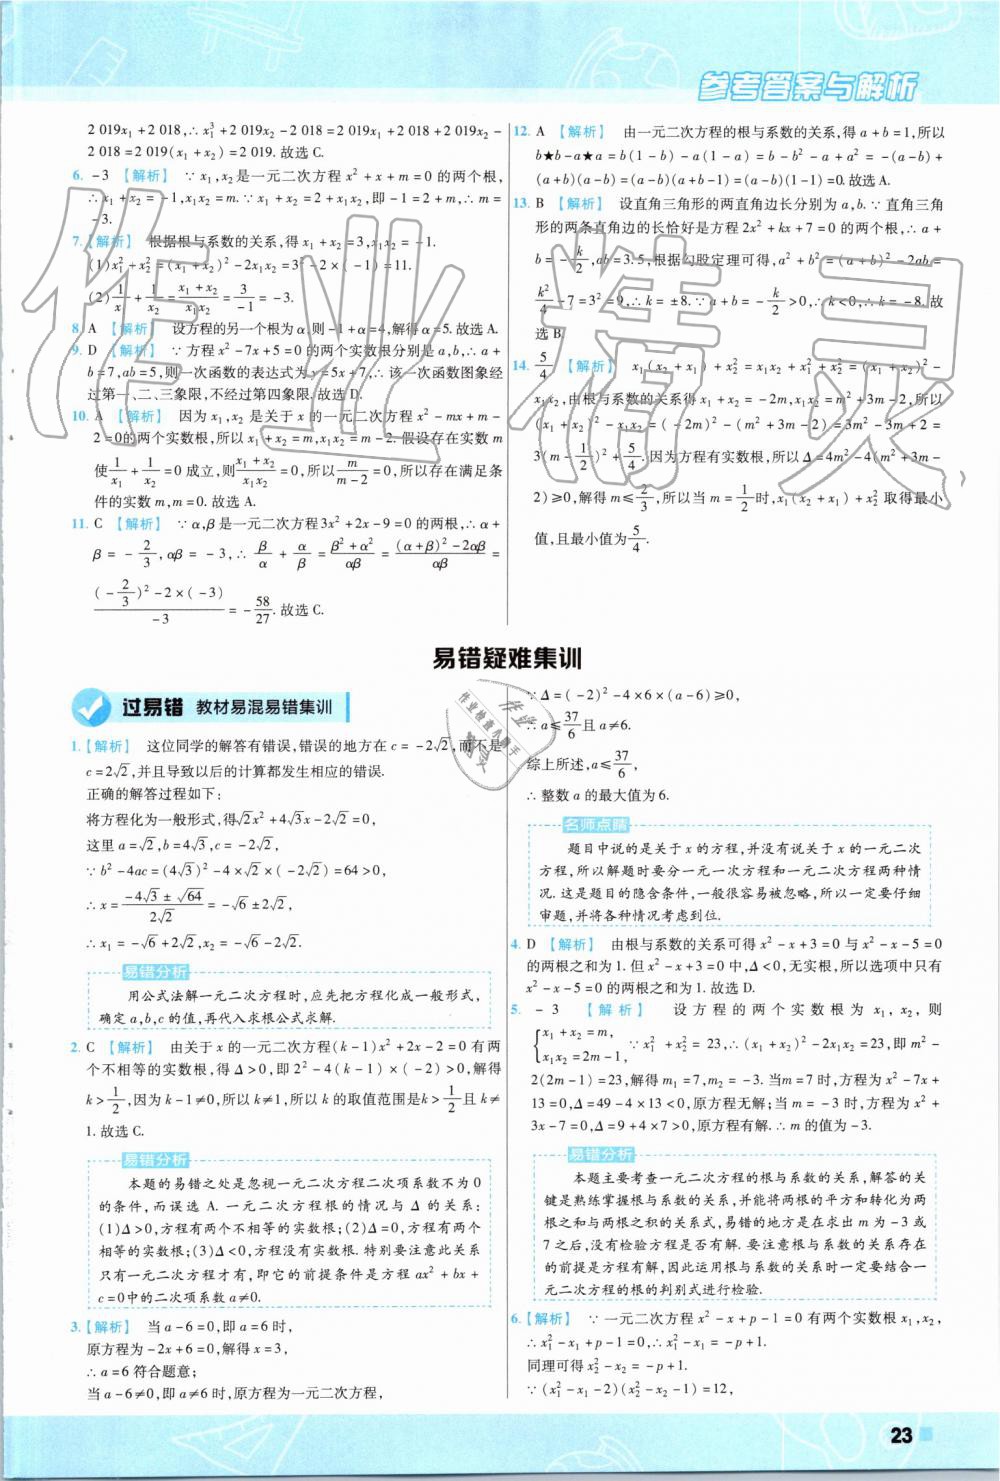 参考答案与解析
2 019x₁+2 018,∴x₁³+2 019x₂-2 018=2 019x₁+2 018+2 019x₂-
2 018=2 019(x₁+x₂)=2 019.故选C.
6. -3 【解析】 ∵x₁,x₂是一元二次方程x²+x+m=0的两个根,
∴x₁+x₂=-1,x₁x₂=m.∵x₁+x₂=2+x₁x₂,即-1=2+m,∴m=
-3.
7.【解析】 根据根与系数的关系,得x₁+x₂=3,x₁x₂=-1.
(1)x₁²+x₂²=(x₁+x₂)²-2x₁x₂=3²-2×(-1)=11.
(2)1/x₁+1/x₂=(x₁+x₂)/(x₁x₂)=3/(-1)=-3.
8. A 【解析】 设方程的另一个根为α,则-1+α=4,解得α=5.故选A.
9. D 【解析】 ∵方程x²-7x+5=0的两个实数根分别是a,b,∴a+
b=7,ab=5,则一次函数的表达式为y=5x+7,∴该一次函数图象经
过第一、二、三象限,不经过第四象限.故选D.
10. A 【解析】 因为x₁,x₂是关于x的一元二次方程x²-mx+m-
2=0的两个实数根,所以x₁+x₂=m,x₁x₂=m-2.假设存在实数m
使1/x₁+1/x₂=0成立,则(x₁+x₂)/(x₁x₂)=0,所以m/(m-2)=0,所以存在满足条
件的实数m,m=0.故选A.
11. C 【解析】 ∵α,β是一元二次方程3x²+2x-9=0的两根,∴α+
β=-2/3,αβ=-3,∴β/α+α/β=(β²+α²)/(αβ)=((α+β)²-2αβ)/(αβ)=
((-2/3)²-2×(-3))/(-3)=-58/27.故选C.
12. A 【解析】 由一元二次方程的根与系数的关系,得a+b=1,所以
b★b-a★a=b(1-b)-a(1-a)=b-b²-a+a²=-(a-b)+
(a+b)(a-b)=(a-b)(a+b-1)=(a-b)(1-1)=0.故选A.
13. B 【解析】 设直角三角形的两直角边长分别为a,b.∵直角三角
形的两条直角边的长恰好是方程2x²+kx+7=0的两个根,∴a+
b=-k/2,ab=3.5,根据勾股定理可得,a²+b²=(a+b)²-2ab=
k²/4-7=3²=9,∴k=±8.∵a+b=-k/2>0,∴k<0,∴k=-8.故
选B.
14. 5/4 【解析】 x₁(x₂+x₁)+x₂²=x₁x₂+x₁²+x₂²=(x₁+x₂)²-
x₁x₂,由根与系数的关系得x₁+x₂=-2m,x₁x₂=m²+3m-2,所以
(x₁+x₂)²-x₁x₂=(-2m)²-(m²+3m-2)=3m²-3m+2=
3(m-1/2)²+5/4.因为方程有实数根,所以Δ=4m²-4(m²+3m-
2)≥0,解得m≤2/3,所以当m=1/2时,x₁(x₂+x₁)+x₂²取得最小
值,且最小值为5/4.
易错疑难集训
过易错 教材易混易错集训
1.【解析】 这位同学的解答有错误,错误的地方在c=-2√2,而不是
c=2√2,并且导致以后的计算都发生相应的错误.
正确的解答过程如下:
将方程化为一般形式,得√2x²+4√3x-2√2=0,
这里a=√2,b=4√3,c=-2√2,
∵b²-4ac=(4√3)²-4×√2×(-2√2)=64>0,
∴x=(-4√3±√64)/(2√2)=-√6±2√2,
∴x₁=-√6+2√2,x₂=-√6-2√2.
易错分析
用公式法解一元二次方程时,应先把方程化成一般形式,
确定a,b,c的值,再代入求根公式求解.
2. C 【解析】 由关于x的一元二次方程(k-1)x²+2x-2=0有两
个不相等的实数根,得Δ>0,即2²-4(k-1)×(-2)>0,解得
k>1/2,因为k-1≠0,所以k≠1,所以k的取值范围是k>1/2且k≠
1.故选C.
易错分析
本题的易错之处是忽视一元二次方程二次项系数不为0
的条件,而误选A.一元二次方程根的情况与Δ的关系:
(1)Δ>0,方程有两个不相等的实数根;(2)Δ=0,方程有两个
相等的实数根;(3)Δ<0,方程没有实数根.特别要注意此关系
只有一元二次方程才有,即它的前提条件是方程ax²+bx+
c=0中的二次项系数a≠0.
3.【解析】 当a-6=0,即a=6时,
原方程为-2x+6=0,解得x=3,
∴a=6符合题意;
当a-6≠0,即a≠6时,原方程为一元二次方程,
∵Δ=(-2)²-4×6×(a-6)≥0,
∴a≤37/6且a≠6.
综上所述,a≤37/6,
∴整数a的最大值为6.
名师点睛
题目中说的是关于x的方程,并没有说关于x的一元二次
方程,所以解题时要分一元一次方程和一元二次方程两种情
况.这是题目的隐含条件,一般很容易被忽略,所以一定要仔细
审题,并将各种情况考虑到位.
4. D 【解析】 由根与系数的关系可得x²-x+3=0与x²-x-5=0
的两根之和为1.但x²-x+3=0中,Δ<0,无实根,所以选项中只有
x²-x-5=0的两根之和为1.故选D.
5. -3 【解析】 设方程的两个实数根为x₁,x₂,则
{x₁+x₂=m,
x₁x₂=2m-1, ∵x₁²+x₂²=23,∴(x₁+x₂)²-2x₁x₂=23,即m²-
2(2m-1)=23,解得m₁=7,m₂=-3.当m=7时,方程为x²-7x+
13=0,Δ=49-4×13<0,原方程无解;当m=-3时,方程为x²+
3x-7=0,Δ=9+4×7>0,原方程有解.∴m的值为-3.
易错分析
本题主要考查一元二次方程的根与系数的关系,解答的关
键是熟练掌握根与系数的关系,并能将两根的平方和转化为两
根之和与两根之积的关系式,易错的地方是在求出m为-3或
7之后,没有检验方程是否有解.要注意根与系数的关系存在
的前提是方程有解,因此运用根与系数的关系时一定要结合一
元二次方程的根的判别式进行检验.
6.【解析】 ∵一元二次方程x²-x+p-1=0有两个实数根x₁,x₂,
∴x₁²-x₁+p-1=0,∴x₁²-x₁=-p+1.
同理可得x₂²-x₂=-p+1.
∵(x₁²-x₁-2)(x₂²-x₂-2)=12,
23
作业精灵